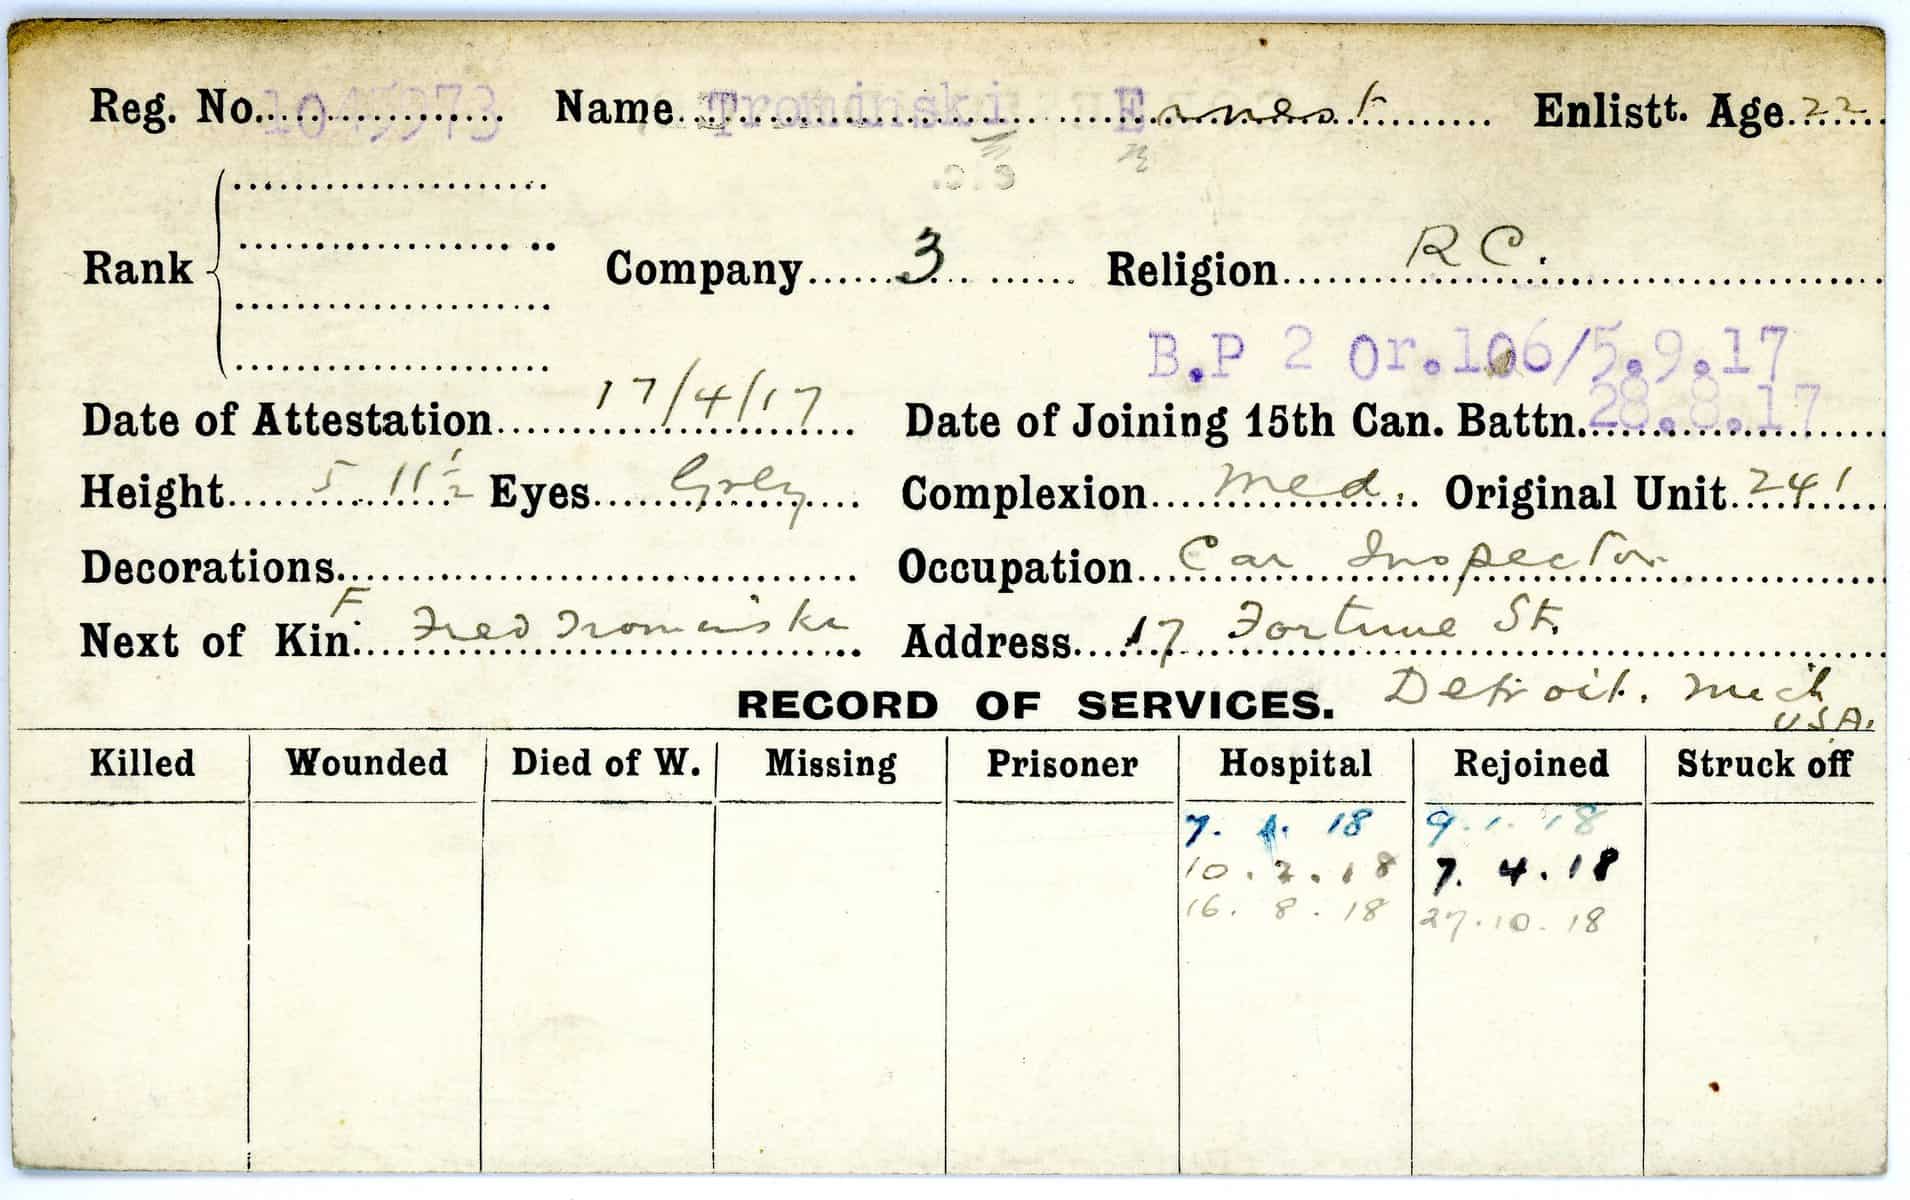 Reg. No. 1045973 Name Trominski Ernest Enlistt. Age 22
Rank Company 3 Religion R C.
B.P 2 Or.106/5.9.17
Date of Attestation 17/4/17 Date of Joining 15th Can. Battn. 28.8.17
Height 5 11½ Eyes Grey Complexion Med. Original Unit 241
Decorations Occupation Car Inspector
Next of Kin. F Fred Trominski Address 17 Fortune St.
RECORD OF SERVICES. Detroit. Mich
USA.
Killed Wounded Died of W. Missing Prisoner Hospital Rejoined Struck off
7. 1. 18 9.1.18
10.2.18 7.4.18
16.8.18 27.10.18